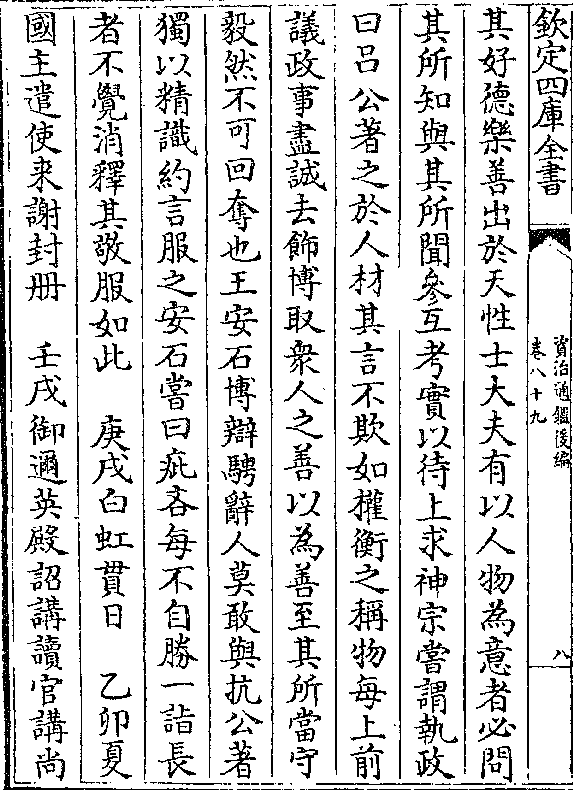 欽定四庫全書
資治通鑑後編
卷八十九
八
其好德樂善出於天性士大夫有以人物為意者必問
其所知與其所聞參互考實以待上求神宗嘗謂執政
曰吕公著之於人材其言不欺如權衡之稱物每上前
議政事盡誠去飾博取衆人之善以為善至其所當守
毅然不可回奪也王安石博辯騁辭人莫敢與抗公著
獨以精識約言服之安石嘗曰疵吝每不自勝一詣長
者不覺消釋其敬服如此　庚戌白虹貫日　乙卯夏
國主遣使来謝封册　壬戌御邇英殿詔講讀官講尚